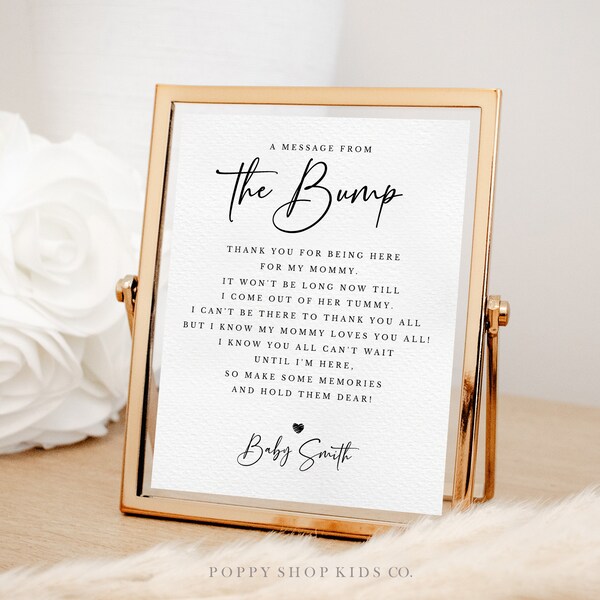 A MESSAGE FROM
the Bump
THANK YOU FOR BEING HERE
FOR MY MOMMY.
IT WON'T BE LONG NOW TILL
I COME OUT OF HER TUMMY.
I CAN'T BE THERE TO THANK YOU ALL
BUT I KNOW MY MOMMY LOVES YOU ALL!
I KNOW YOU ALL CAN'T WAIT
UNTIL I'M HERE,
SO MAKE SOME MEMORIES
AND HOLD THEM DEAR!
Baby Smith
POPPY SHOP KIDS CO.